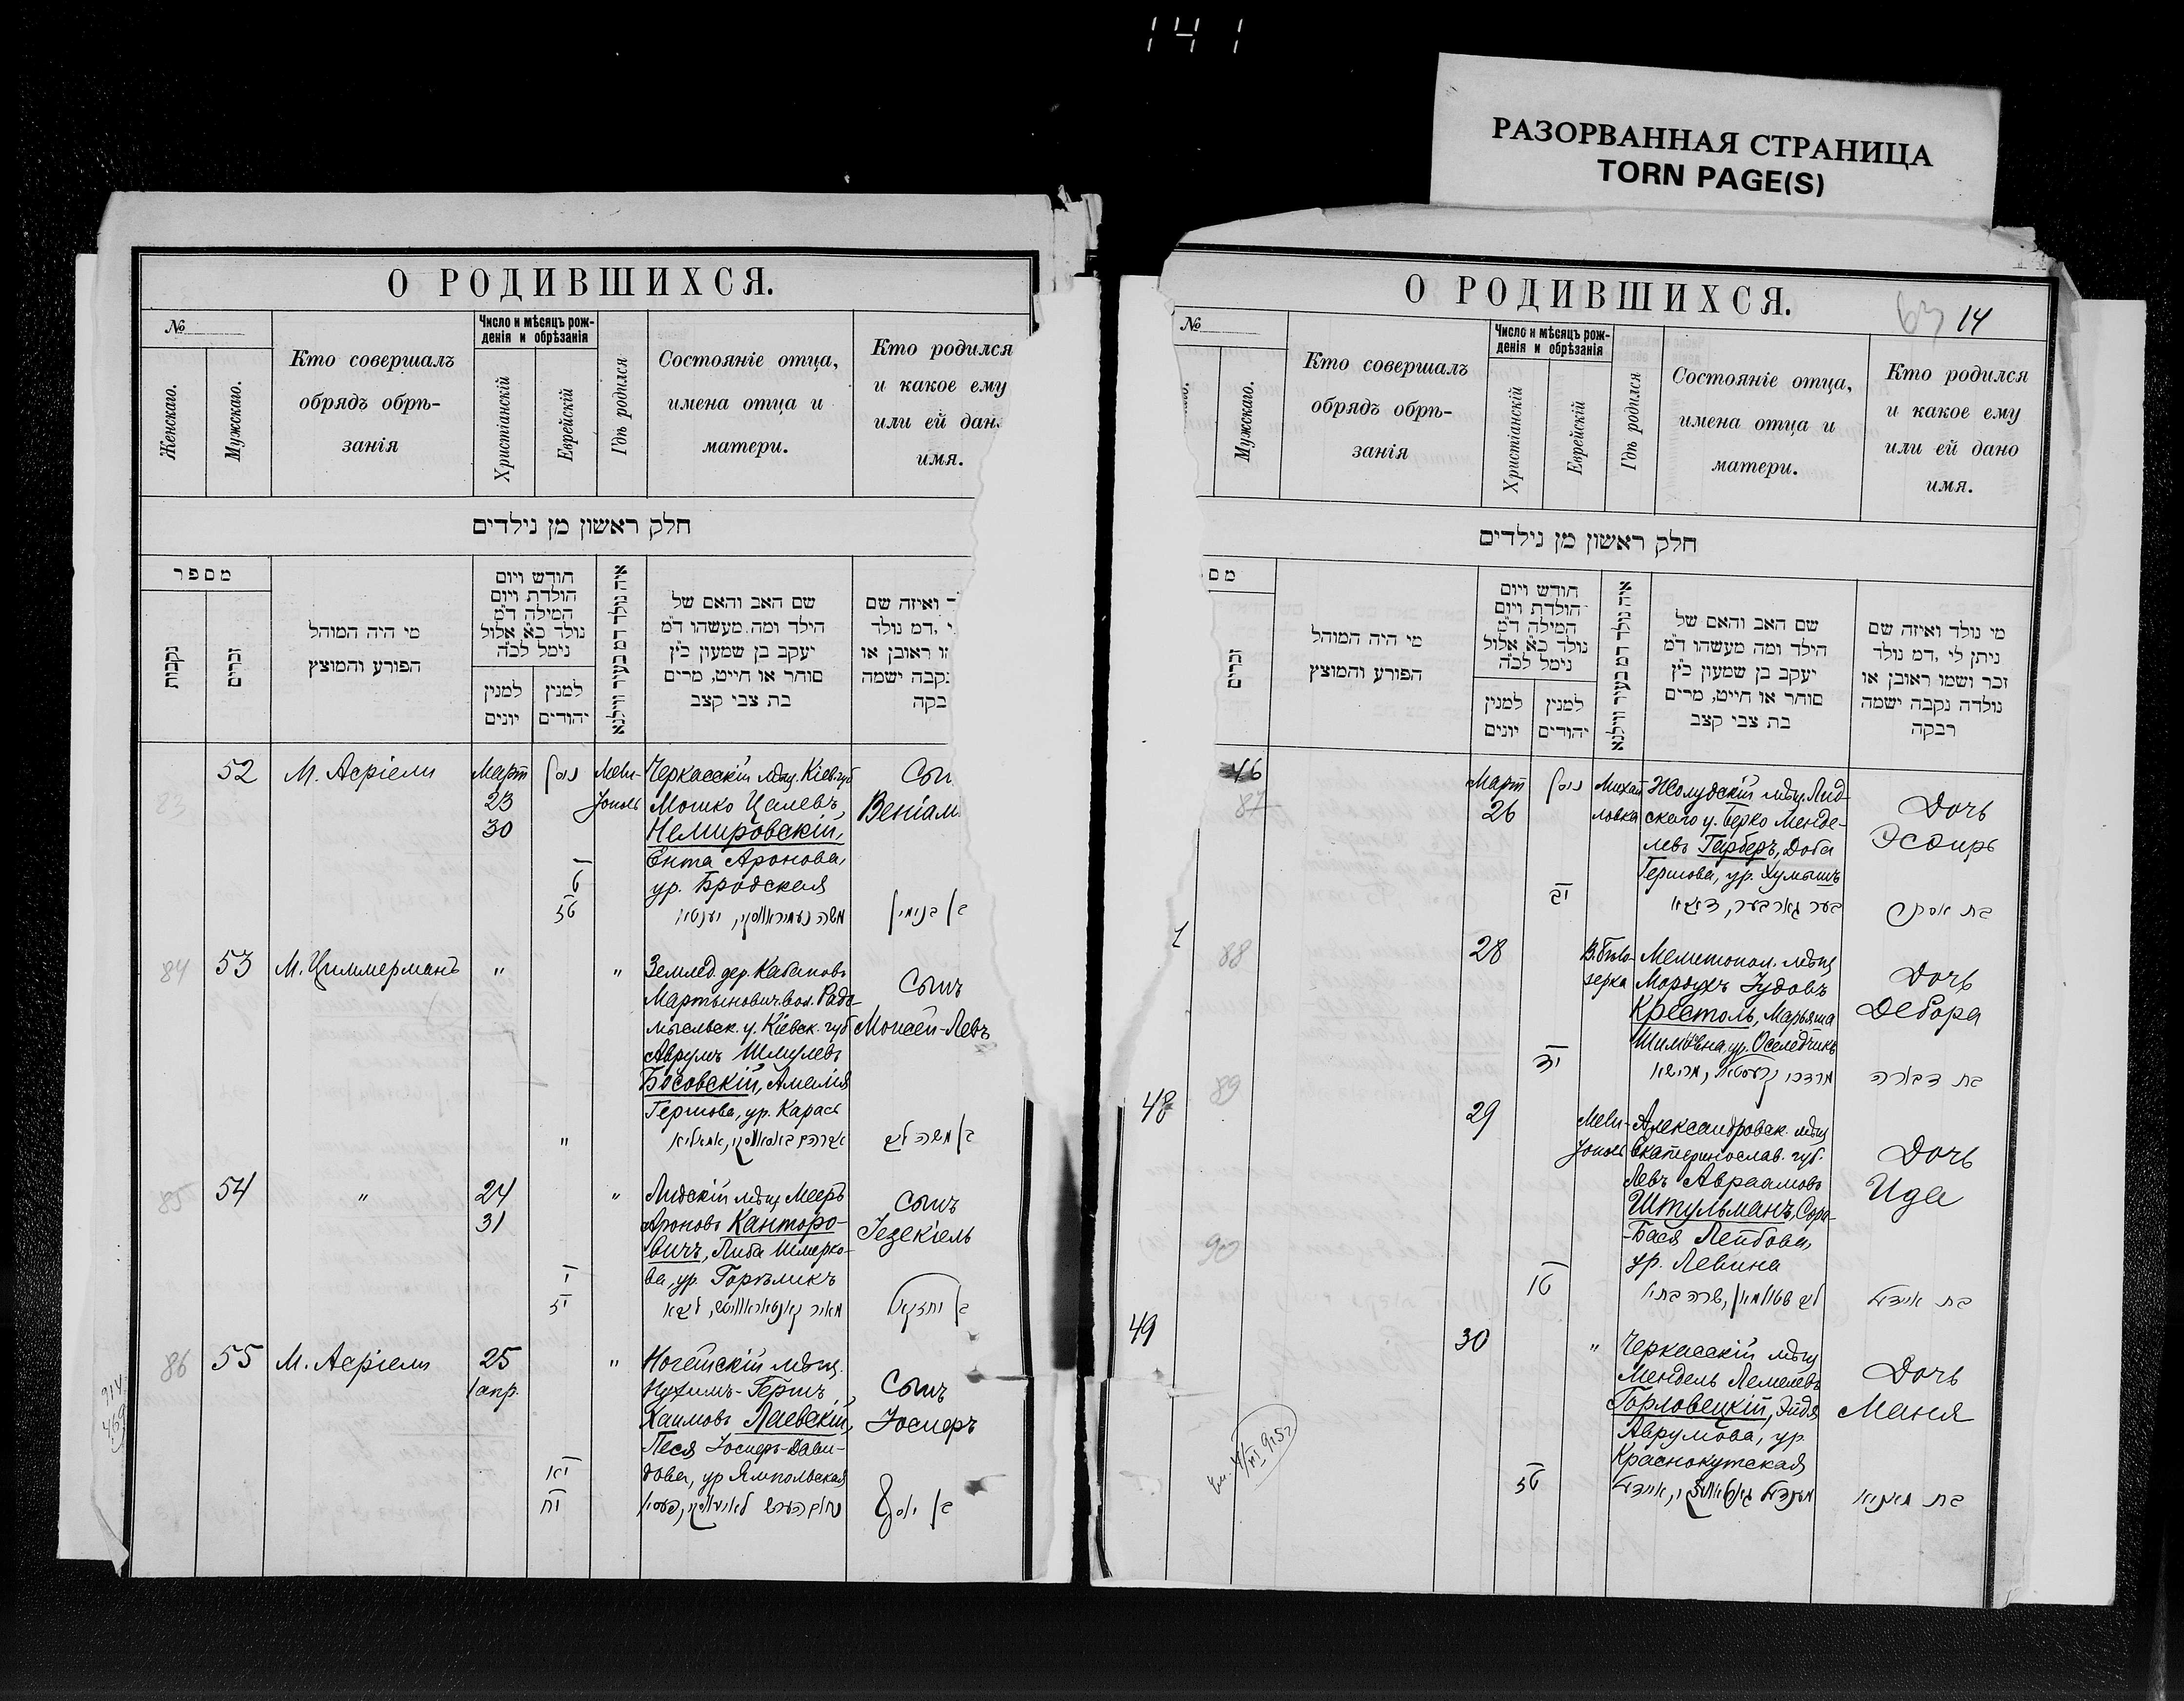 141
РАЗОРВАННАЯ СТРАНИЦА
TORN PAGE(S)
О РОДИВШИХСЯ.
№
Женскаго.
Мужскаго.
Кто совершалъ
обрядъ обрѣ-
занія
Число и мѣсяцъ рож-
денія и обрѣзанія
Христіанскій
Еврейскій
Гдѣ родился
Состояніе отца,
имена отца и
матери.
Кто родился
и какое ему
или ей дан
имя.
חלק ראשון מן נילדים
מספר
נקבות
זכרים
מי היה המוהל
הפורע והמוצץ
חודש ויום
הולדת ויום
המילה ד״מ
נולד כ״א אלול
נימל לכ״ה
למנין
יונים
למנין
יהודים
איה נולד דמ בעיר ווילנא
שם האב והאם של
הילד ומה מעשהו ד״מ
יעקב בן שמעון כ״ץ
סוחר או חייט, מרים
בת צבי קצב
ואיזה שם
דמ נולד
ראובן או
נקבה ישמה
בקה
52
М. Асріели
Мартъ
23
30
ניסן
Мели-
тополь
Черкасскій мѣщ. Кіев. губ
Мошко Цалевъ,
Немировскій,
Ента Аронова,
ур. Бродская
Сы
Веніам
ט
טז
בן בנימין
84
53
М. Циммерманъ
"
"
Землед. дер. Кабановъ
Мартынович. вол. Радо-
мысльск. у. Кіевск. губ
Аврумъ Шмулевъ
Босовскій, Амалія
Гершова, ур. Карась
Сынъ
Моисей-Левъ
"
בן משה לב
85
54
"
24
31
"
Лидскій мѣщ. Мееръ
Ароновъ Канторо-
вичъ, Либа Шмерко-
ва, ур. Горѣликъ
Сынъ
Іезекіель
י
יז
בן יחזקאל
86
55
М. Асріели
25
1 апр.
"
Ногайскій мѣщ.
Нухимъ-Гершъ
Хаимовъ Лаевскій,
Песя Іосифъ-Дави-
дова, ур Ямпольская
Сынъ
Іосифъ
יא
יח
בן יוסף
О РОДИВШИХСЯ.
63 14
№
Мужскаго.
Кто совершалъ
обрядъ обрѣ-
занія
Число и мѣсяцъ рож-
денія и обрѣзанія
Христіанскій
Еврейскій
Гдѣ родился
Состояніе отца,
имена отца и
матери.
Кто родился
и какое ему
или ей дано
имя.
חלק ראשון מן נילדים
מס
זכרים
מי היה המוהל
הפורע והמוצץ
חודש ויום
הולדת ויום
המילה ד״מ
נולד כ״א אלול
נימל לכ״ה
למנין
יונים
למנין
יהודים
איה נולד דמ בעיר ווילנא
שם האב והאם של
הילד ומה מעשהו ד״מ
יעקב בן שמעון כ״ץ
סוחר או חייט, מרים
בת צבי קצב
מי נולד ואיזה שם
ניתן לי, דמ נולד
זכר ושמו ראובן או
נולדה נקבה ישמה
רבקה
46
87
Мартъ
26
ניסן
Михай
ловка
Жолудскій мѣщ. Лид-
скаго у. Берко Менде-
левъ Герберъ, Доба
Гершова, ур. Хумышъ
Дочь
Эсѳирь
יב
בת אסתר
88
28
В. Бѣло-
зерка
Мелитопол. мѣщ
Мордухъ Іудовъ
Крестоль, Марьяша
Шимовна, ур. Оселедчикъ
Дочь
Дебора
יד
בת דבורה
48
89
29
Мели-
тополь
Александровск. мѣщ
Екатеринослав. губ.
Левъ Авраамовъ
Штульманъ, Сора-
-Бася Лейбова,
ур. Левина
Дочь
Ида
טו
בת איידע
49
90
30
"
Черкасскій мѣщ
Мендель Лемелевъ
Горловецкій, Эйдя
Аврумова, ур.
Краснокутская
Дочь
Маня
טז
בת מאניא